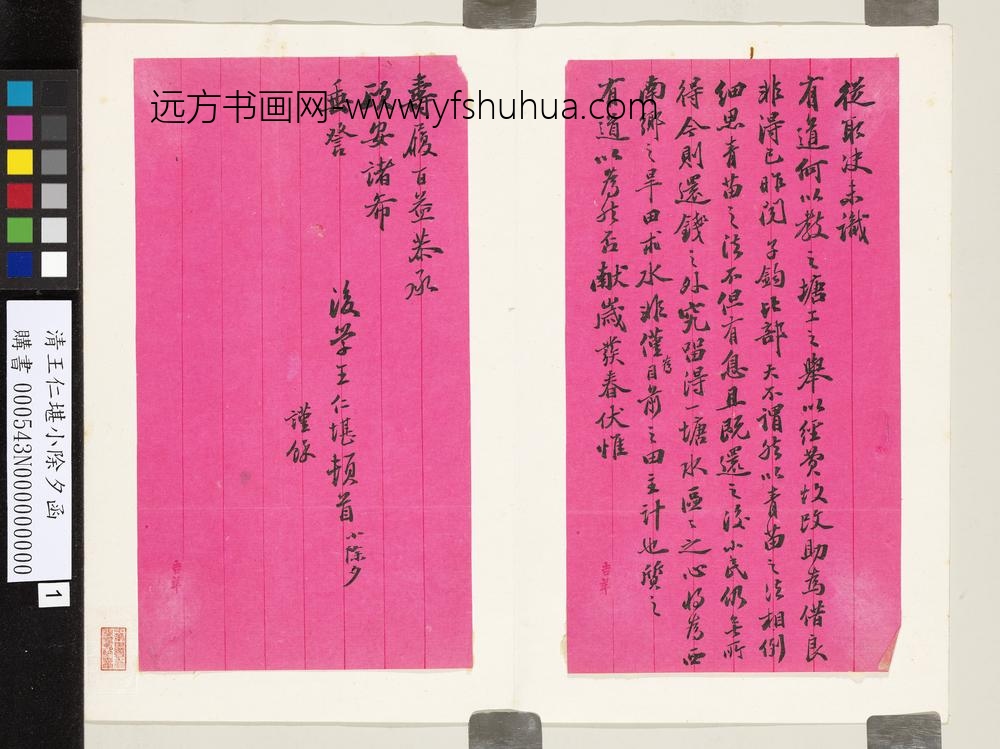 從取決未識
有道何以教之塘工之舉以經費故改助為借良
非得已昨閱子鈞比部大不謂然以青苗之法相例
細思青苗之法不但有息且既還之後小民仍無所
得今則還錢之外究留得一塘水區區之心將為西
南鄉之旱田求水非僅為目前之田主計也質之
有道以為然否獻歲發春伏惟
春履百益恭承
頤安諸希
垂詧
後學王仁堪頓首小除夕
謹餘
远方书画网 www.yfshuhua.com
清王仁堪小除夕函
購書 000543N000000000
1